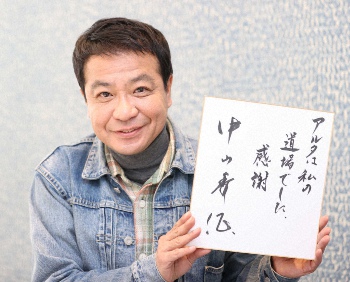 アルタは私の
道場でした。
感謝
中山秀征